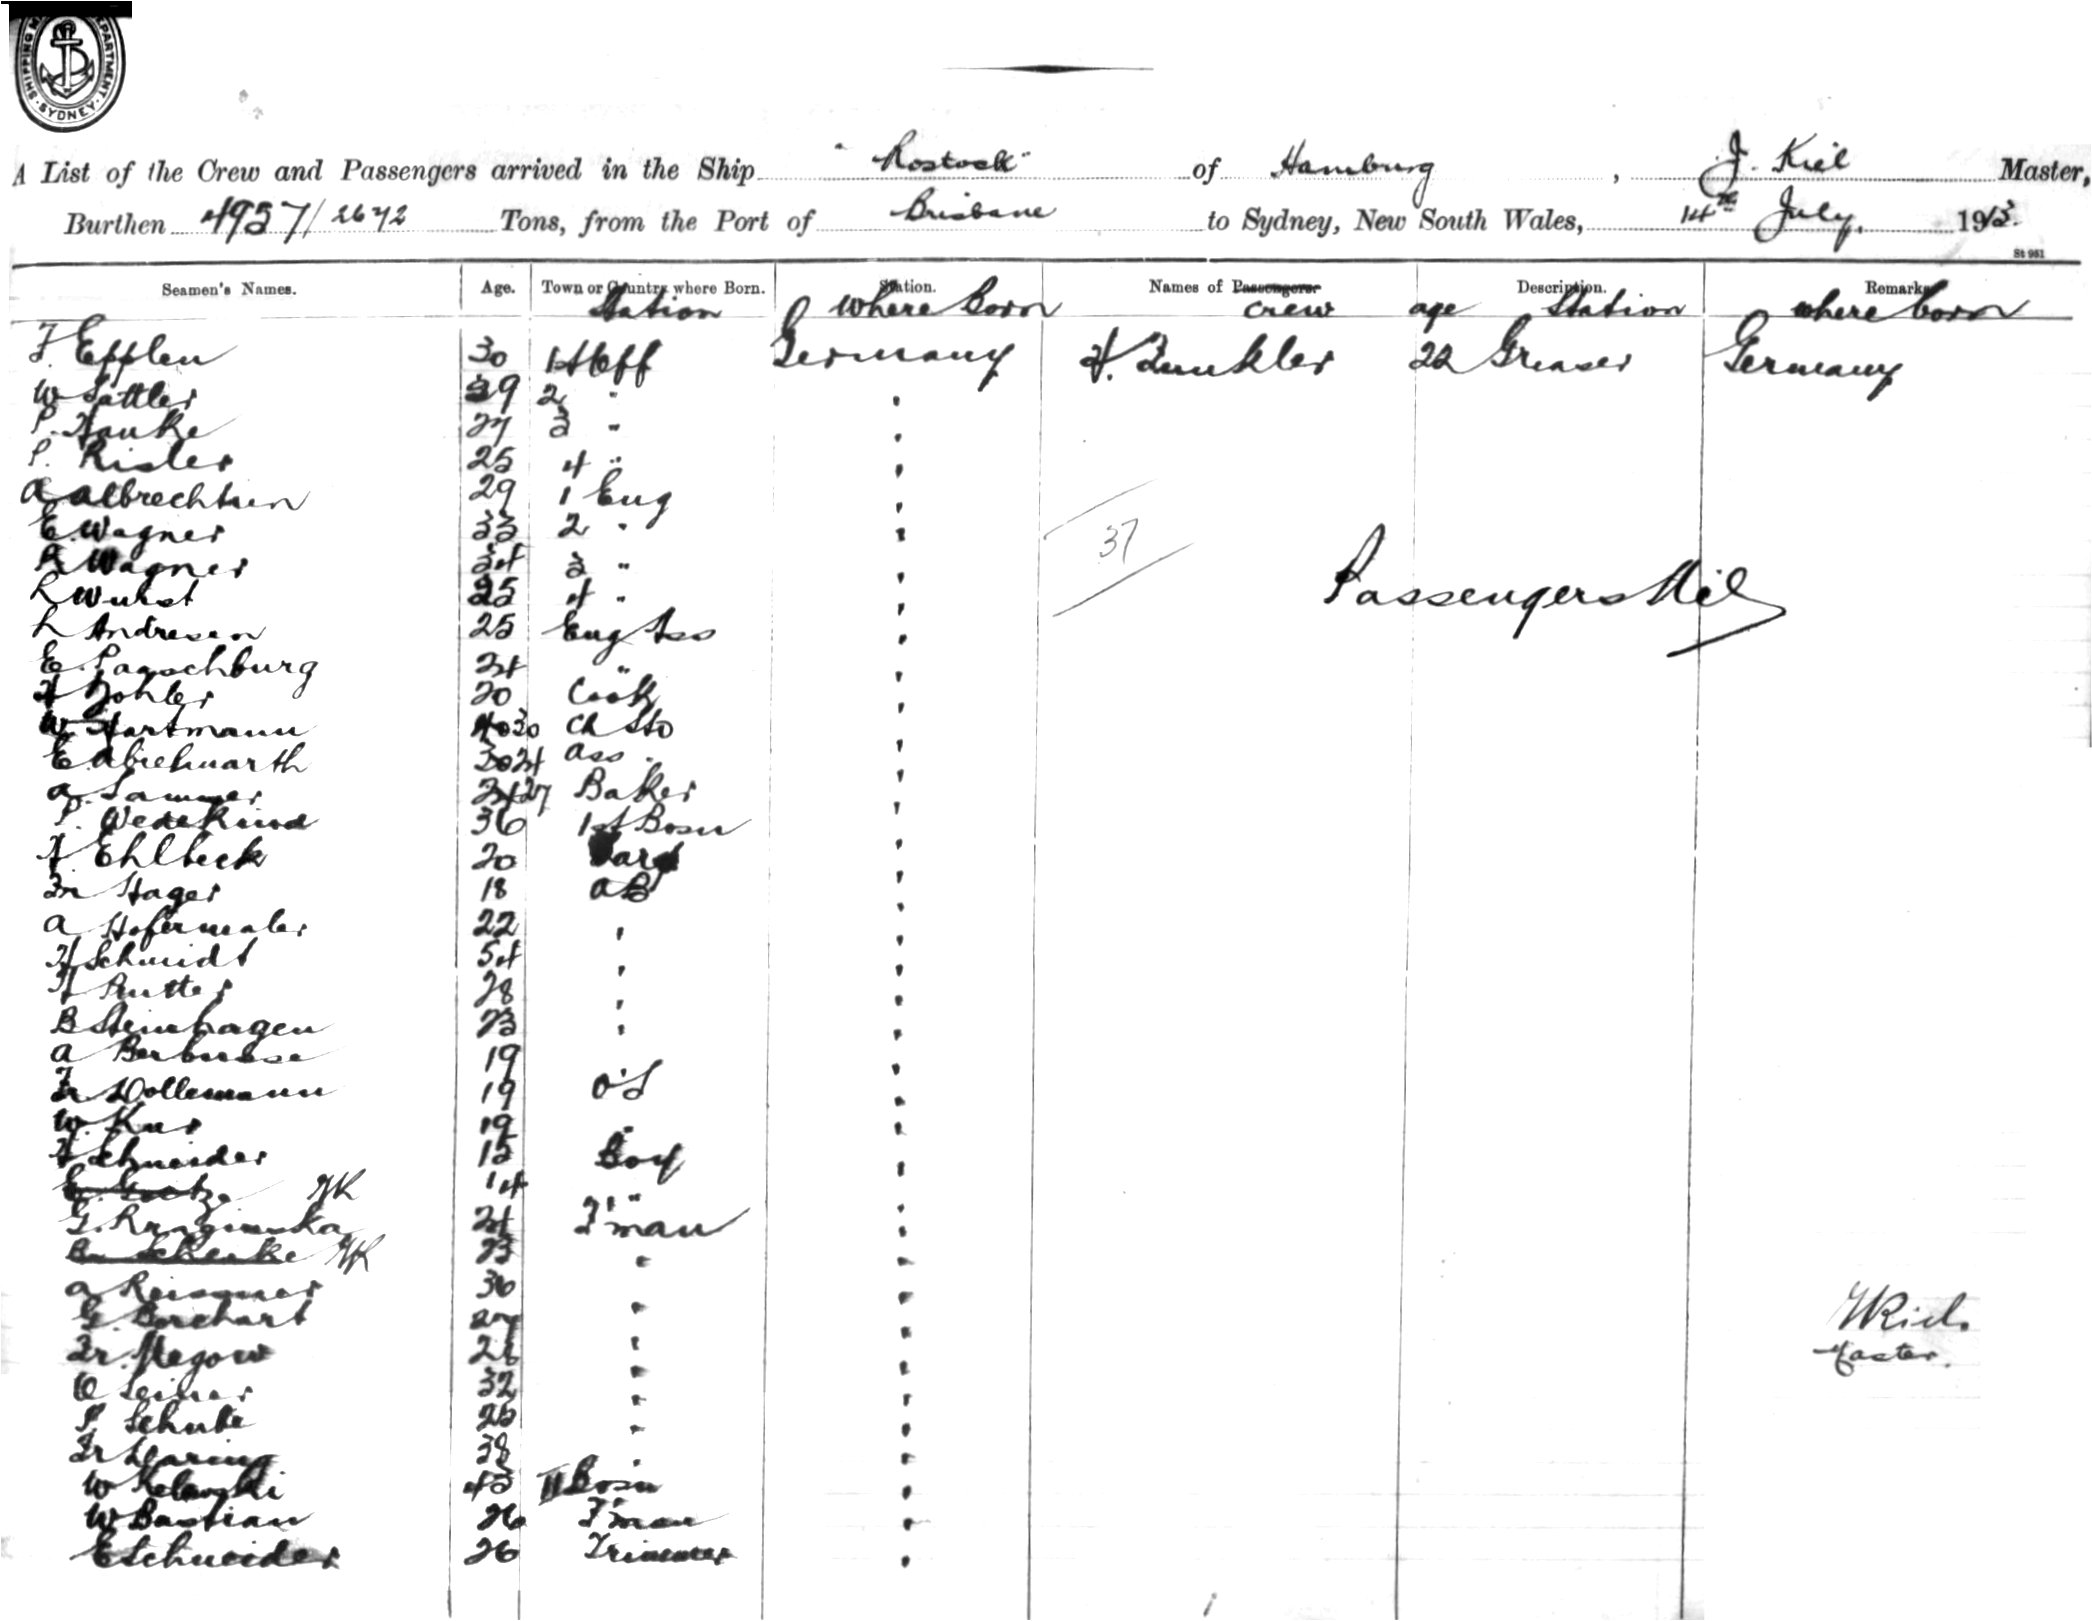 SHIPPING M PARTMENT. SYDNEY
A List of the Crew and Passengers arrived in the Ship "Rostock" of Hamburg, J. Kiel Master,
Burthen 4957/2672 Tons, from the Port of Brisbane to Sydney, New South Wales, 14th July. 1913.
St 951
Seamen's Names. Age. Town or Country where Born. Station. Names of Passengers. Description. Remarks
Station where born crew age Station where born
F. Epplen 30 1st Off Germany H. Zunkler 22 Greaser Germany
W Sattler 29 2 "
P. Hauke 27 3 "
P. Risler 25 4 "
A Albrechtsen 29 1 Eng
E. Wagner 33 2 "
A Wagner 34 3 "
37
L Wuhst 25 4 "
Passengers Nil
L Andresen 25 Eng Ass
E. 24 "
H Zohler 20 Cook
W Hartmann 40 30 Ch Sto
E. 30 24 Ass.
A. Sammer 24 27 Baker
P. Wedekind 36 1st Bosn
H Ehlbeck 20
Fr Hager 18 AB
A 22 "
H Schmidt 54 "
H Rutter 28 "
B Steinhagen 23 "
A 19
Fr Wollemann 19 O'S
W. Kur 19 "
H Schneider 15 Boy
E. Goetze JK 14 "
G. 24 F'man
Schenke JK 23 "
A 36 "
G. Borchart 27 "
Fr. Megow 28 "
O 32 "
P Schulze 25 "
Fr 38 "
W 43 II Bosn
W Bastian 26 F'man
E Schneider 26 Trimmer
JKiel.
Master.